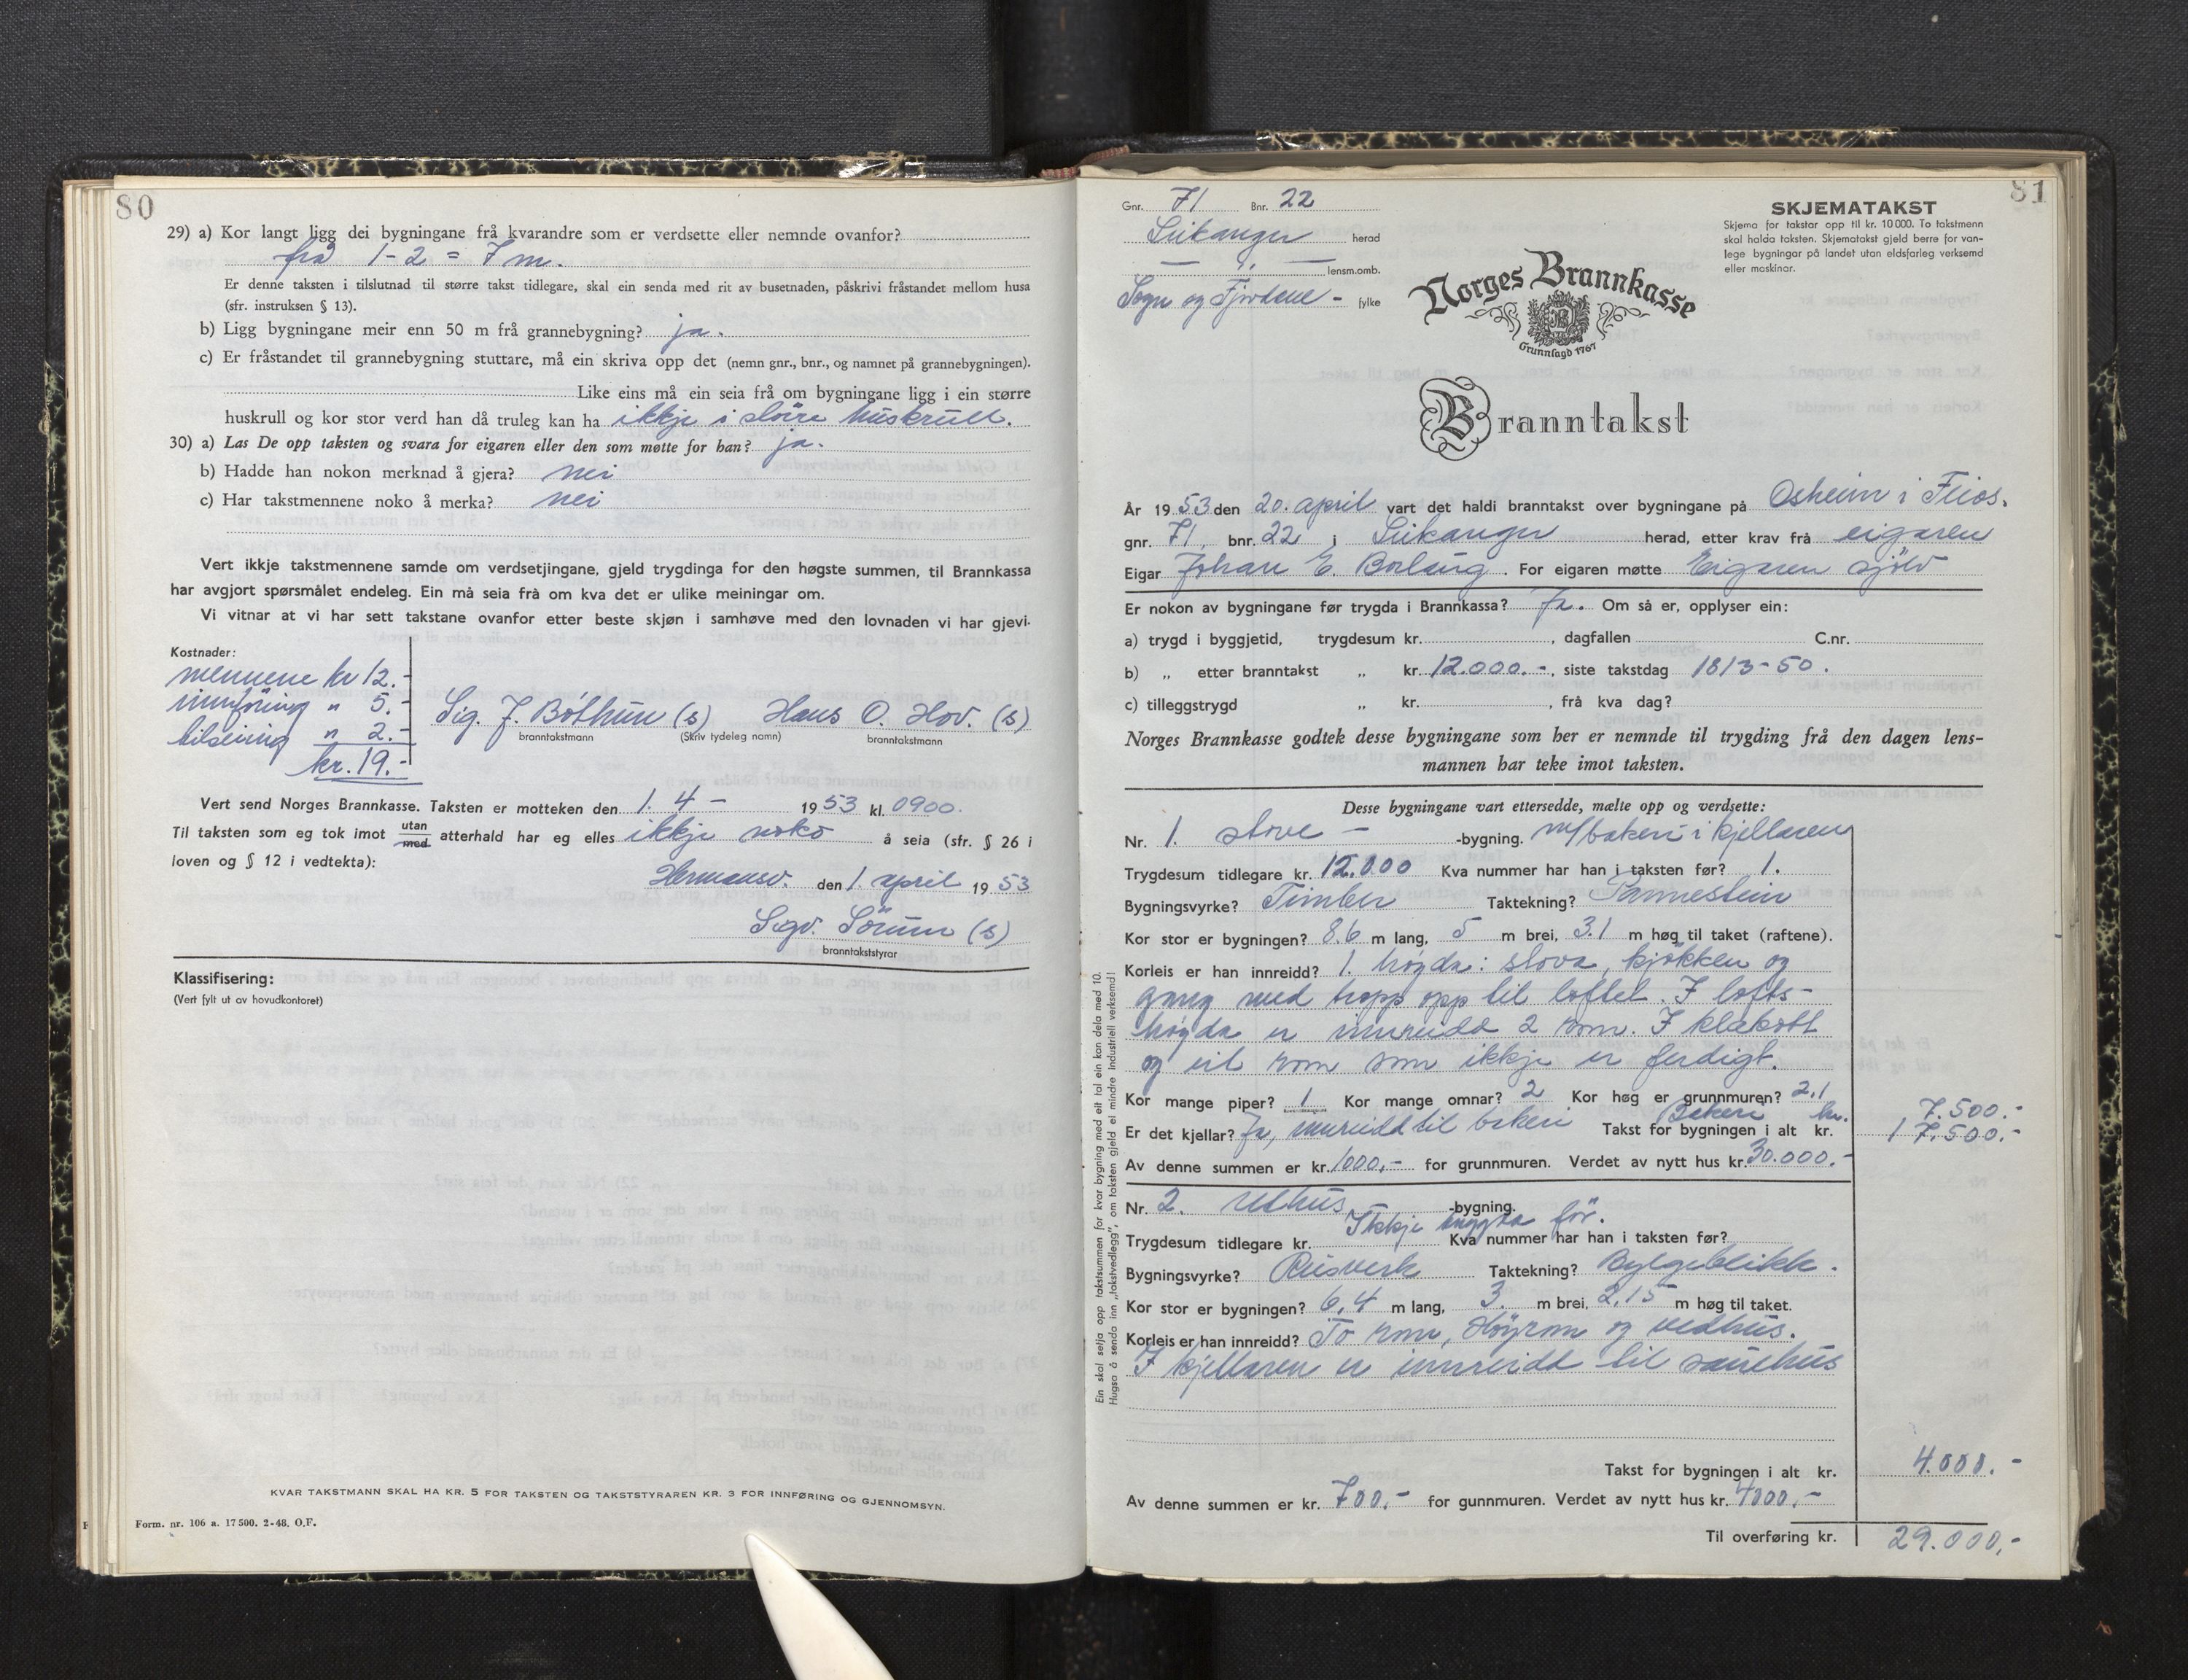 80
29) a) Kor langt ligg dei bygningane frå kvarandre som er verdsette eller nemnde ovanfor?
frå 1-2 = 7 m.
Er denne taksten i tilslutnad til større takst tidlegare, skal ein senda med rit av busetnaden, påskrivi fråstandet mellom husa
(sfr. instruksen § 13).
b) Ligg bygningane meir enn 50 m frå grannebygning? ja.
c) Er fråstandet til grannebygning stuttare, må ein skriva opp det (nemn gnr., bnr., og namnet på grannebygningen).
Like eins må ein seia frå om bygningane ligg i ein større
huskrull og kor stor verd han då truleg kan ha ikkje i större huskrull.
30) a) Las De opp taksten og svara for eigaren eller den som møtte for han? ja.
b) Hadde han nokon merknad å gjera? nei
c) Har takstmennene noko å merka? nei
Vert ikkje takstmennene samde om verdsetjingane, gjeld trygdinga for den høgste summen, til Brannkassa
har avgjort spørsmålet endeleg. Ein må seia frå om kva det er ulike meiningar om.
Vi vitnar at vi har sett takstane ovanfor etter beste skjøn i samhøve med den lovnaden vi har gjevi.
Kostnader:
mennene kr 12.-
innföring " 5.-
bilskyss " 2.-
kr. 19.-
Sig. J. Bóthun (s) Hans O. Hov. (s)
branntakstmann (Skriv tydeleg namn) branntakstmann
Vert send Norges Brannkasse. Taksten er motteken den 1. 4 - 1953 kl. 0900.
Til taksten som eg tok imot utan/med atterhald har eg elles ikkje noko å seia (sfr. § 26 i
loven og § 12 i vedtekta):
Hermansv. den 1. april 1953
Sigv. Sörum (s)
branntakststyrar
Klassifisering:
(Vert fylt ut av hovudkontoret)
KVAR TAKSTMANN SKAL HA KR. 5 FOR TAKSTEN OG TAKSTSTYRAREN KR. 3 FOR INNFØRING OG GJENNOMSYN.
Form. nr. 106 a. 17500. 2-48. O.F.
81
Gnr. 71 Bnr. 22
Leikanger herad
— " — lensm.omb.
Sogn og Fjordane - fylke
SKJEMATAKST
Skjema for takstar opp til kr. 10 000. To takstmenn
skal halda taksten. Skjematakst gjeld berre for van-
lege bygningar på landet utan eldsfarleg verksemd
eller maskinar.
Norges Brannkasse
Grunnlagd 1767
Branntakst
År 1953 den 20. april vart det haldi branntakst over bygningane på Osheim i Feios.
gnr. 71, bnr. 22 i Leikanger herad, etter krav frå eigaren
Eigar Johan E. Borlaug. For eigaren møtte Eigaren sjölv
Er nokon av bygningane før trygda i Brannkassa? Ja. Om så er, opplyser ein:
a) trygd i byggjetid, trygdesum kr. , dagfallen C.nr.
b) „ etter branntakst „ kr. 12.000.-, siste takstdag 18/3-50.
c) tilleggstrygd „ kr. , frå kva dag?
Norges Brannkasse godtek desse bygningane som her er nemnde til trygding frå den dagen lens-
mannen har teke imot taksten.
Desse bygningane vart ettersedde, mælte opp og verdsette:
Nr. 1. stove - -bygning. m/bakeri i kjellaren
Trygdesum tidlegare kr. 12.000 Kva nummer har han i taksten før? 1.
Bygningsvyrke? Timber Taktekning? Pannestein
Kor stor er bygningen? 8.6 m lang, 5 m brei, 3.1 m høg til taket (raftene).
Korleis er han innreidd? 1. högda: stova, kjökken og
gang med tropp opp til loftet. I lofts-
högda er innreidd 2 rom. I klekott
og eit rom som ikkje er ferdigt.
Kor mange piper? 1 Kor mange omnar? 2 Kor høg er grunnmuren? 2,1
Bakeri kr. 7.500.-
Er det kjellar? Ja, innreidd til bakeri Takst for bygningen i alt kr. 17.500.-
Av denne summen er kr. 1000,- for grunnmuren. Verdet av nytt hus kr. 30.000.-
Nr. 2. Uthus -bygning.
Trygdesum tidlegare kr. Ikkje trygda för. Kva nummer har han i taksten før?
Bygningsvyrke? Reisverk Taktekning? Bylgjeblikk.
Kor stor er bygningen? 6,4 m lang, 3 m brei, 2,15 m høg til taket.
Korleis er han innreidd? To rom, Höyrom og vedhus.
I kjellaren er innreidd til sauehus
Takst for bygningen i alt kr. 4.000.-
Av denne summen er kr. 700,- for gunnmuren. Verdet av nytt hus kr. 4000,-
Til overføring kr. 29.000,-
Ein skal setja opp takstsummen for kvar bygning med eit tal ein kan dela med 10.
Hugsa å senda inn „takstvedlegg", om taksten gjeld ei mindre industriell verksemd!